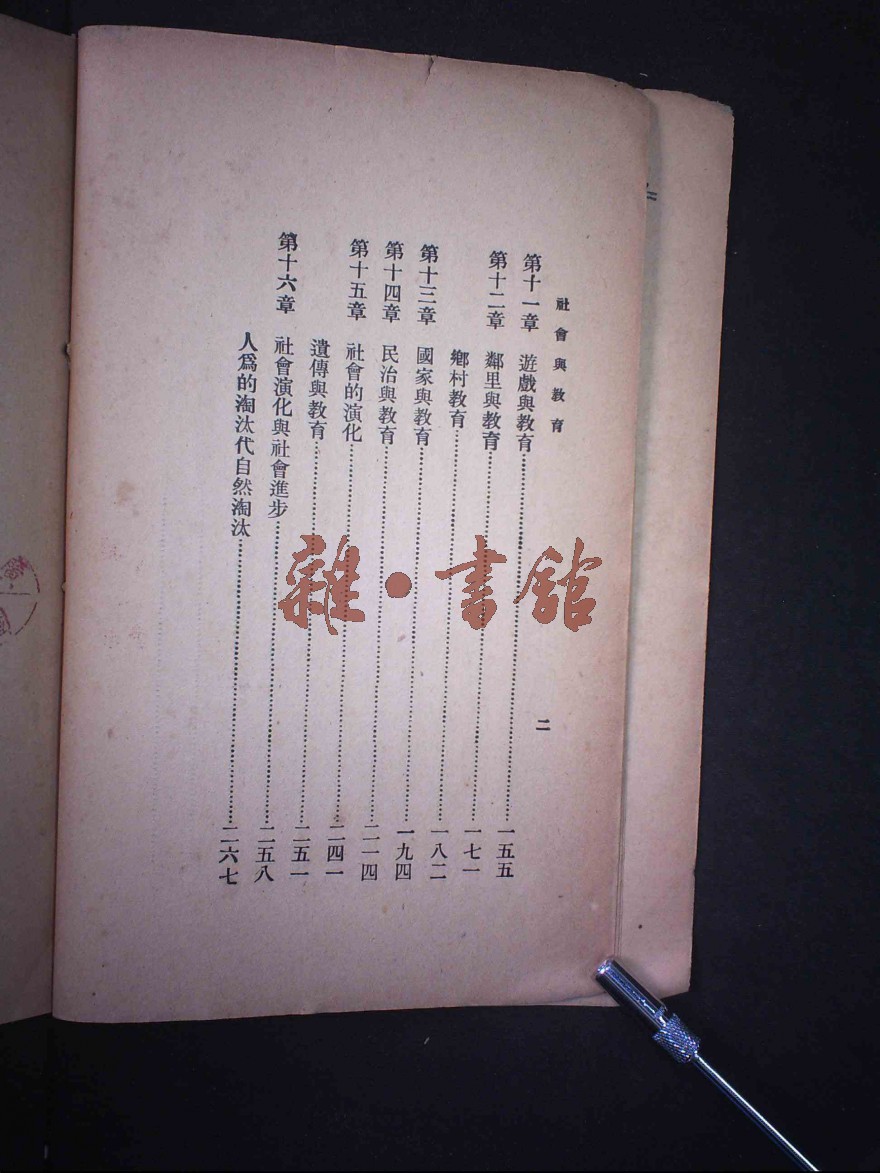 社會與教育　二
第十一章　遊戲與教育……一五五
第十二章　鄰里與教育……一七一
鄉村教育……一八二
第十三章　國家與教育……一九四
第十四章　民治與教育……二一四
第十五章　社會的演化……二四一
遺傳與教育……二五一
第十六章　社會演化與社會進步……二五八
人爲的淘汰代自然淘汰……二六七
雜·書館